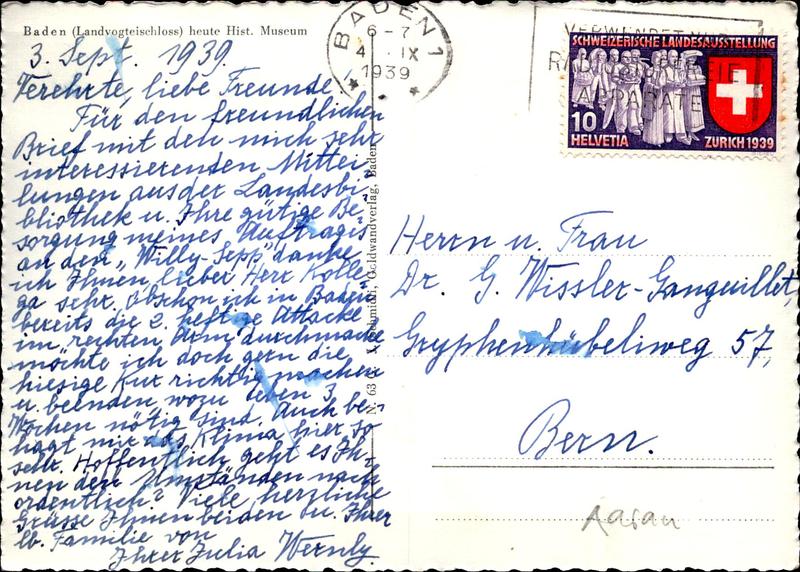 Baden (Landvogteischloss) heute Hist. Museum
3. Sept. 1939.
Verehrte, liebe Freunde,
Für den freundlichen
Brief mit den mich sehr
interessierenden Mittei-
lungen aus der Landesbi-
bliothek u. Ihre gütige Be-
sorgung meines Auftrages
an den „Willy-Sepp" danke
ich Ihnen, lieber Herr Kolle-
ga sehr. Obschon ich in Baden
bereits die 2. heftige Attacke
im rechten Arm durchmache
möchte ich doch gern die
hiesige Kur richtig machen
u. beenden, wozu eben 3
Wochen nötig sind. Auch be-
hagt mir das Klima hier so
sehr. Hoffentlich geht es Ih-
nen den Umständen nach
ordentlich? Viele herzliche
Grüsse Ihnen beiden u. Ihrer
lb. Familie von
Ihrer Julia Wernly.
N. 63 X. Schmidli, Goldwandverlag, Baden
BADEN 1
6-7
4. IX
1939
VERWENDET NUR
APPARATE
SCHWEIZERISCHE LANDESAUSSTELLUNG
10
HELVETIA ZURICH 1939
Herrn u. Frau
Dr. G. Wissler-Ganguillet,
Gryphenhübeliweg 57,
Bern.
Aarau